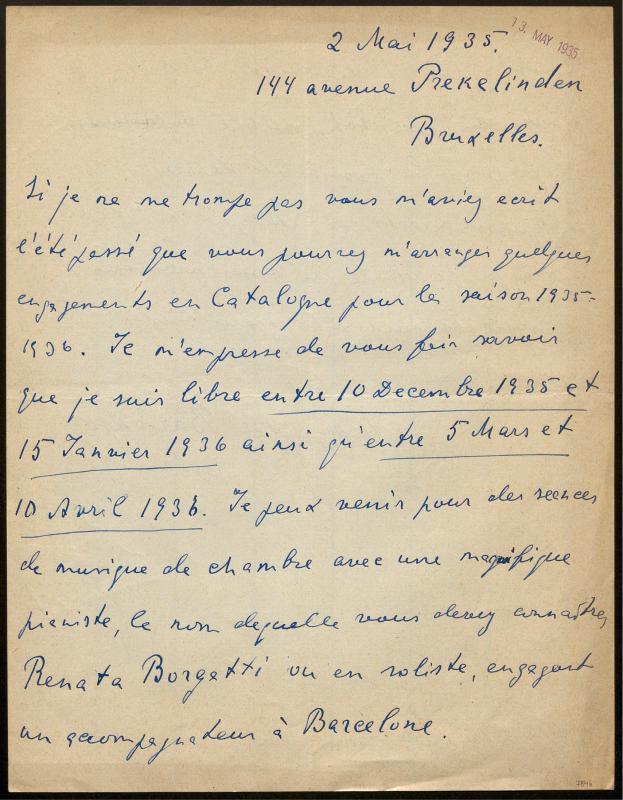 2 Mai 1935.
13. MAY 1935
144 avenue Prekelinden
Bruxelles.
Si je ne me trompe pas vous m'aviez ecrit
l'été passé que vous pourrez m'arranger quelques
engagements en Catalogne pour la saison 1935-
1936. Je m'empresse de vous fair savoir
que je suis libre entre 10 Decembre 1935 et
15 Janvier 1936 ainsi qu'entre 5 Mars et
10 Avril 1936. Je peux venir pour des seances
de musique de chambre avec une magnifique
pianiste, le nom dequelle vous devez connaitre,
Renata Borgatti ou en soliste, engageant
un accompagnateur à Barcelone.